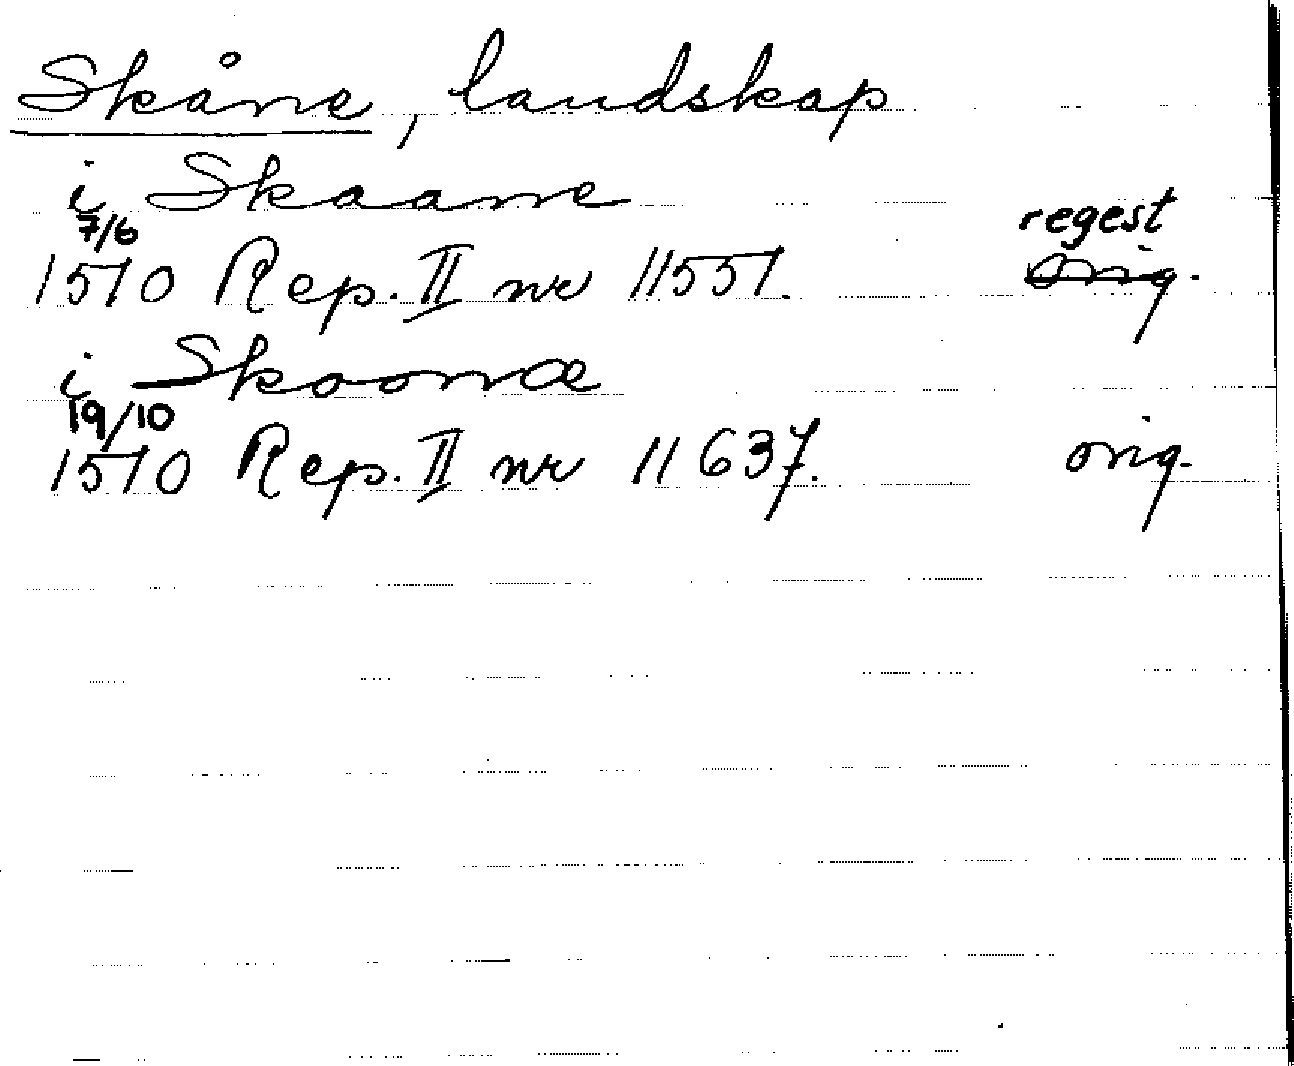 Skåne, landskap
i Skaane
7/6 regest
1510 Rep. II nr 11551. orig.
i Skoonæ
19/10
1510 Rep. II nr 11637. orig.